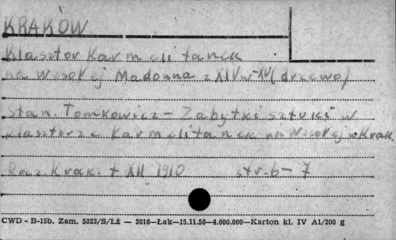 KRAKÓW
Klasztor Karmelitanek
na Wesołej Madonna z XIV w-XV (drzewo)
Stan. Tomkowicz - Zabytki sztuki w
klasztorze Karmelitanek na Wesołej w Krak.
Rocz. Krak. t XII 1910 str. 6-7
CWD - B-15b. Zam. 5823/S/Łż — 3016—Łak—15.11.56—4.000.000—Karton kl. IV A1/200 g